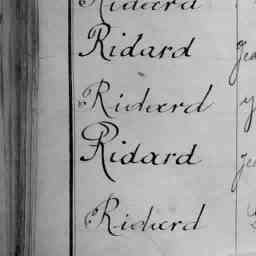 Ridard
Ridard
Ridard
Ridard
Ridard